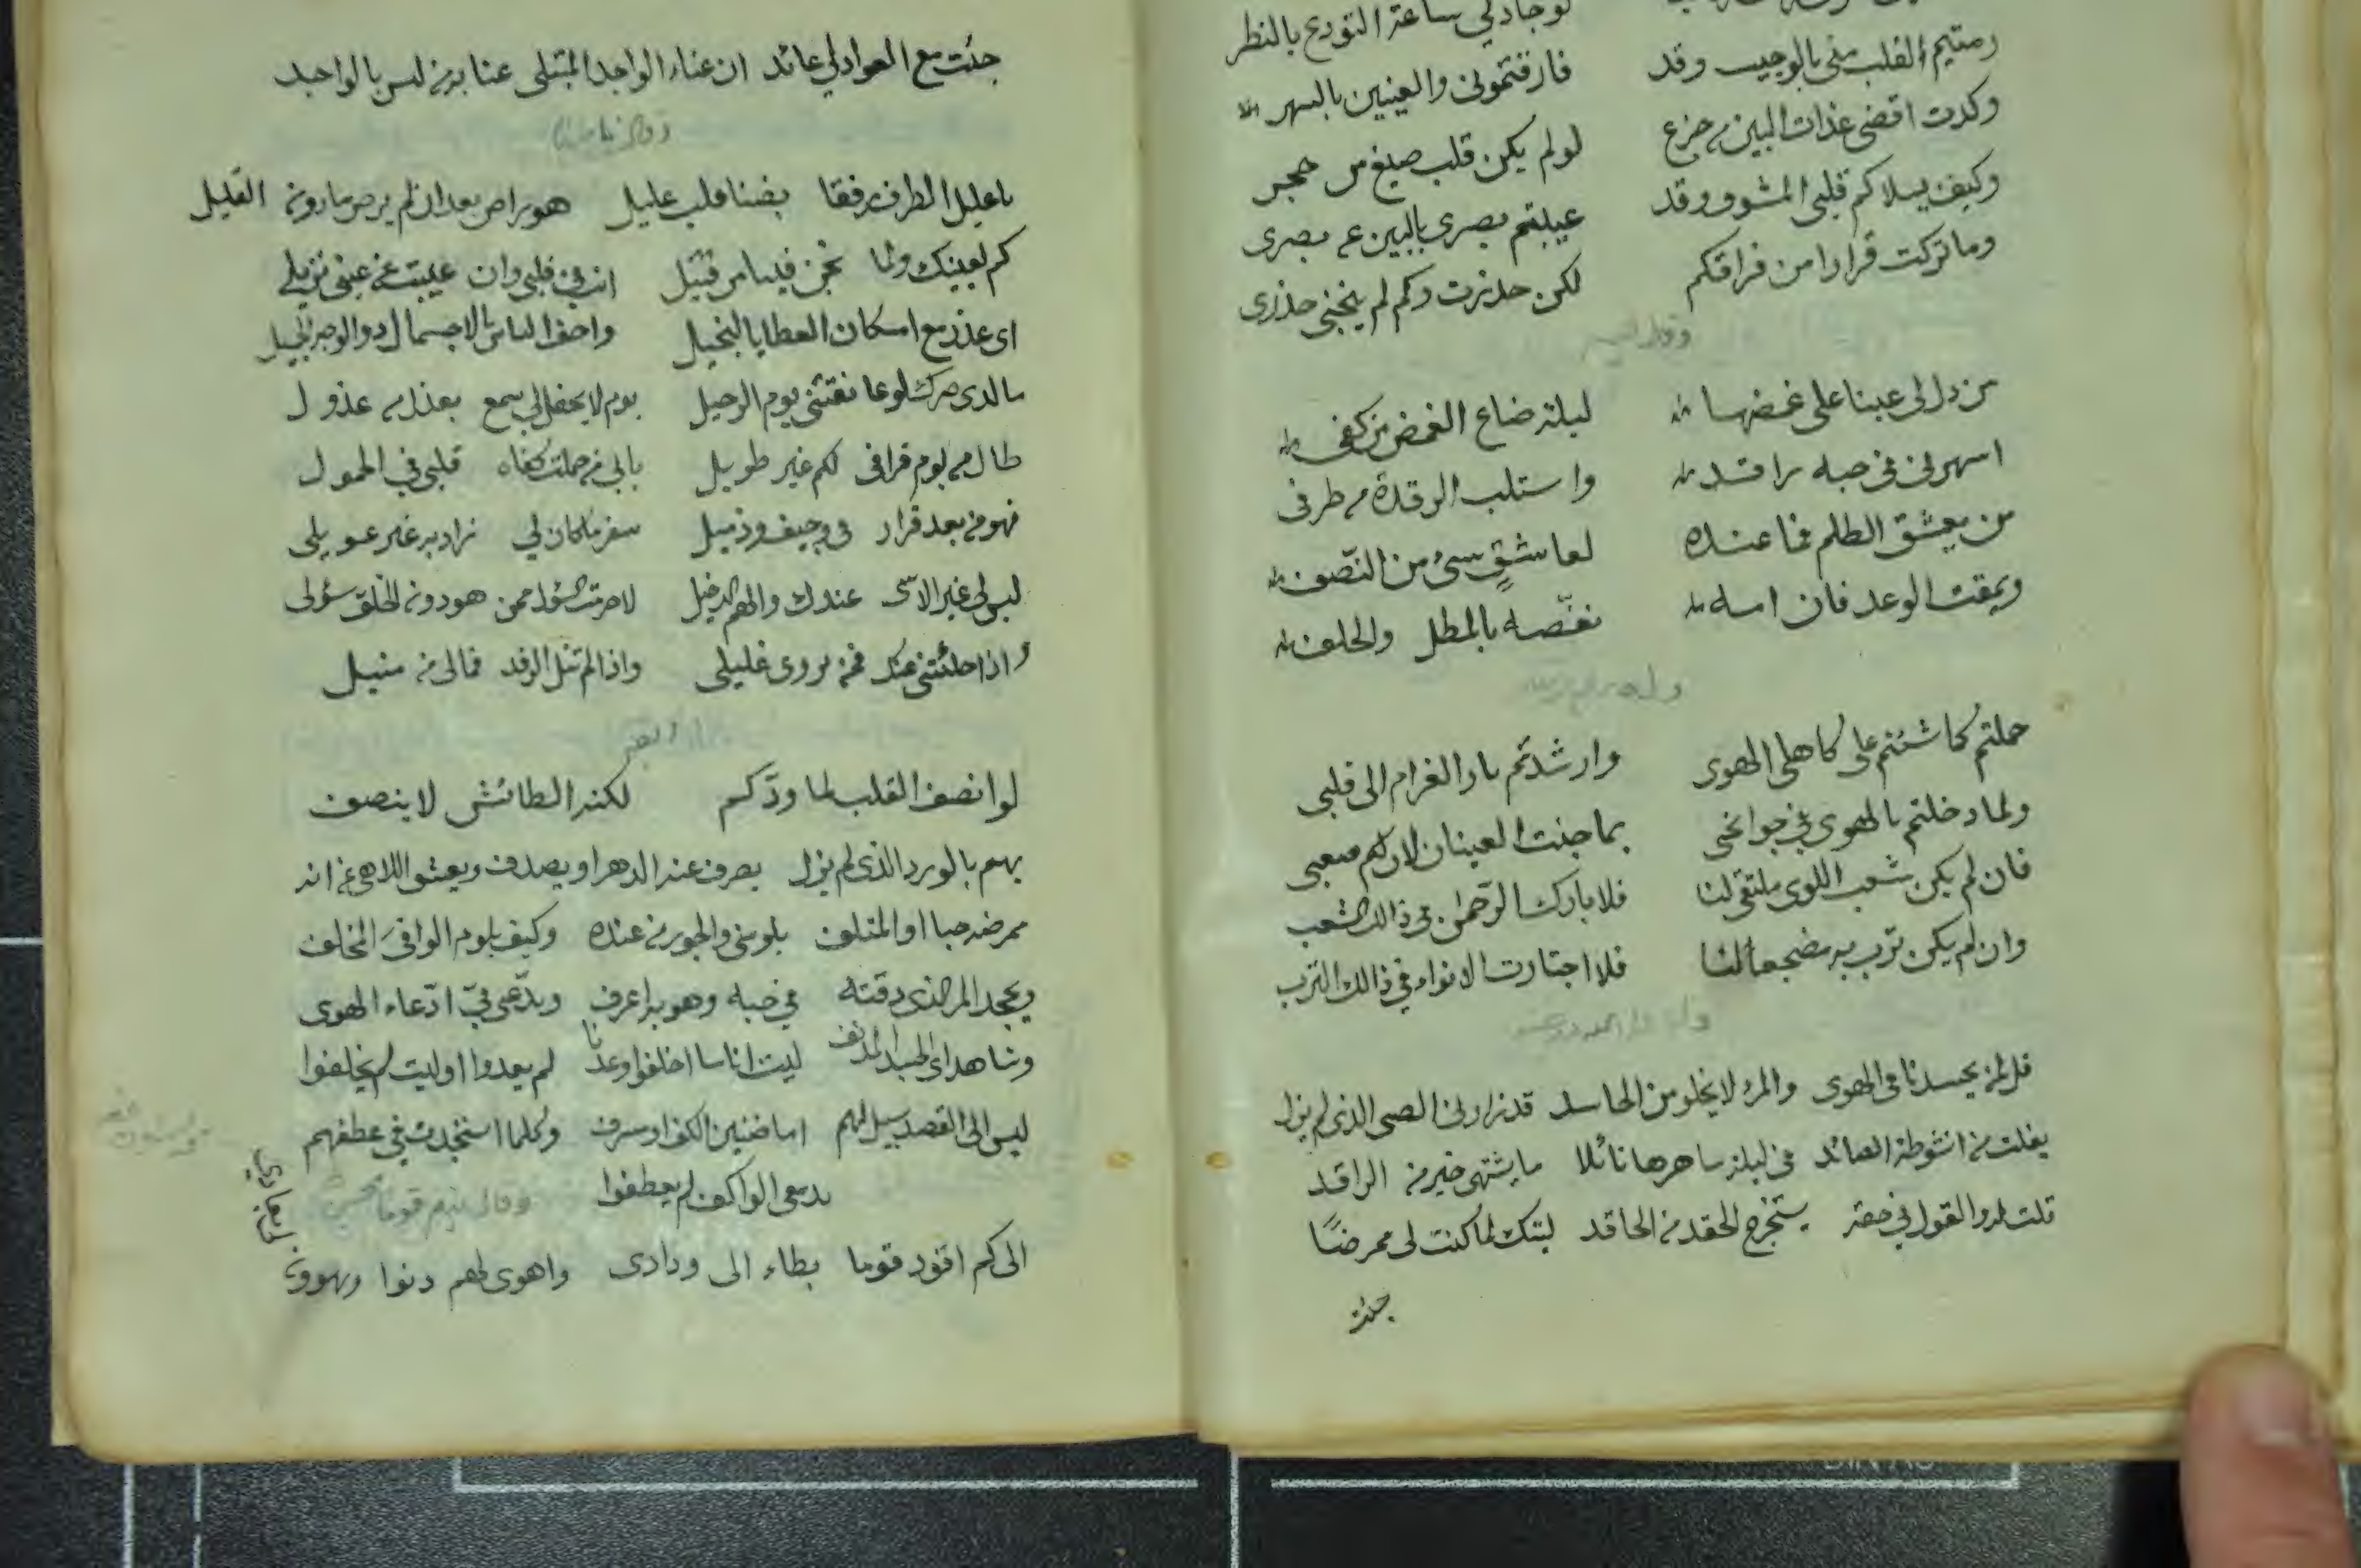 لو جاد لي ساعة التوديع بالنظر
رميتم القلب مني بالوجيب وقد فارقتموني والعينين بالسهر
وكدت اقضي غداة البين من جزع لو لم يكن قلب صيغ من حجر
وكيف يسلاكم قلبي المشوق وقد غيبتم بصري بالبين عن بصري
وما تركت قرارا من فراقكم لكن حذرت وكم لم ينجني حذري
من دل لي عينا على غمضها ليلة ضاع الغمض من كفي
اسهرني في حبه راقد واستلب الرقدة من طرفي
من يعشق الظلم فما عنده لعاشقٍ شيء من النّصف
ويمقت الوعد فان امه نغّصه بالمطل والخلف
حملتم كما شئتم على كاهلي الهوى وارشدتم نار الغرام الى قلبي
ولما دخلتم بالهوى في جوانحي بما جنت العينان لان لكم صعبي
فان لم يكن شعب اللوى ملتقى لنا فلا بارك الرّحمن في ذالك الشعب
وان لم يكن ترب به مضجعا لنا فلا اجتازت الانواء في ذالك الترب
قل لمن يحسدنا في الهوى والمرء لا يخلو من الحاسد قد زارني الصبى الذي لم يزل
يفلت من انشوطة الصائد في ليلة ساهرها نائلا ما يشتهي خير من الراقد
قلت له والقول في حقه يستخرج الحقد من الحاقد ليتك لما كنت لي ممرضًا
جئت
جئت مع العواد لي عائد ان عناء الواجد المبتلى عنا به من ليس بالواجد
يا عليل الطرف رفقا بضنا قلب عليل هو راض بعد ان لم يرض ما دونه القليل
كم لعينيك ولما نجن فينا من قتيل انت في قلبي وان غيبت عن عيني نزيلي
اي عذر مع امكان العطايا للبخيل واحق الناس بالاجمال ذو الوجه الجميل
ما لذي ضرك لو عانقتني يوم الرحيل يوم لا يحفل لي سمع بعذل من عذول
طال من يوم فراقي لكم غير طويل بابي من حملت كفاه قلبي في الحمول
فهو من بعد قرار في وجيف وذميل سفر ما كان لي زاد به غير عويلي
ليس لي غير الاسى عندك والهم الدخيل لا حرمت السؤل ممن هو دون الخلق سؤلي
واذا حلئتني عنك فمن يروي غليلي واذا لم تنل الرفد فمالي من منيل
لو انصف القلب لما ودّكم لكنه الطائش لا ينصف
يهيم بالورد الذي لم يزل يصرف عنه الدهر او يصدف ويعشق اللاهي عن انه
ممرضه حبا او المتلف يلومني والجور من عنده وكيف يلوم الوافيَ المخلف
ويجحد المر الذي دقته في حبه وهو به اعرف ويدّعي فيّ ادّعاء الهوى
وشاهداي الجسد المدنف ليت اناسا اخلفوا وعدنا لم يعدوا او ليت لم يخلفوا
ليس الى القصد سبيل لهم اما ضنين الكف او مسرف وكلما استنجدت في عطفهم
بدمعي الواكف لم يعطفوا
الى كم اقود قوما بطاء الى ودادي واهوى لهم دنوا ويهوون